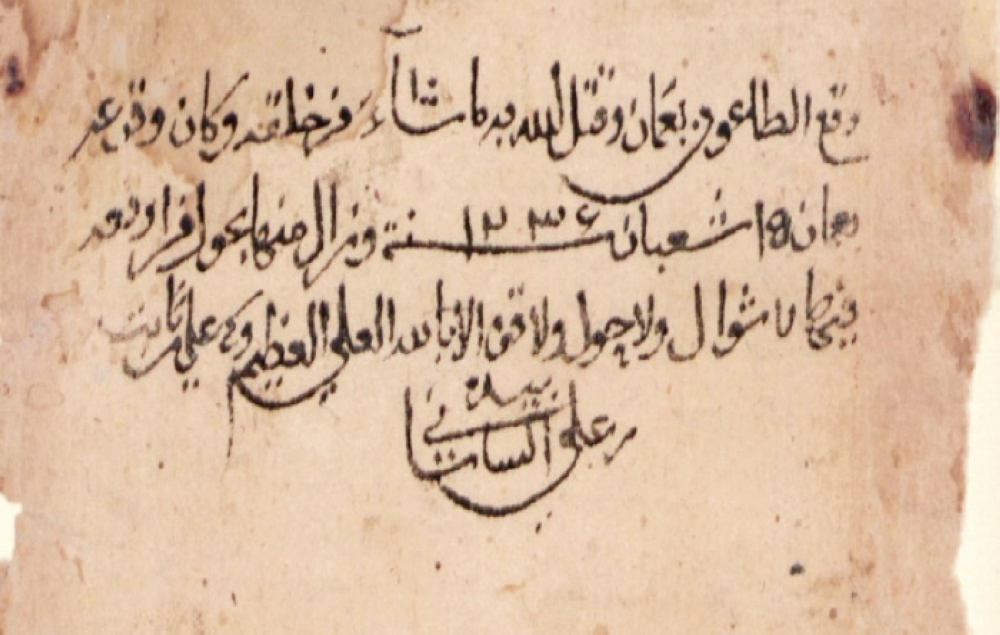 وقع الطاعون بعمان وقتل الله به ما شاء من خلقه وكان وقوعه
بعمان ١٥ شعبان سنة ١٢٣٦ وزال منها
شوال ولا حول ولا قوة الا بالله العلي العظيم وكتبه علي بن ثابت
بن علي بيده